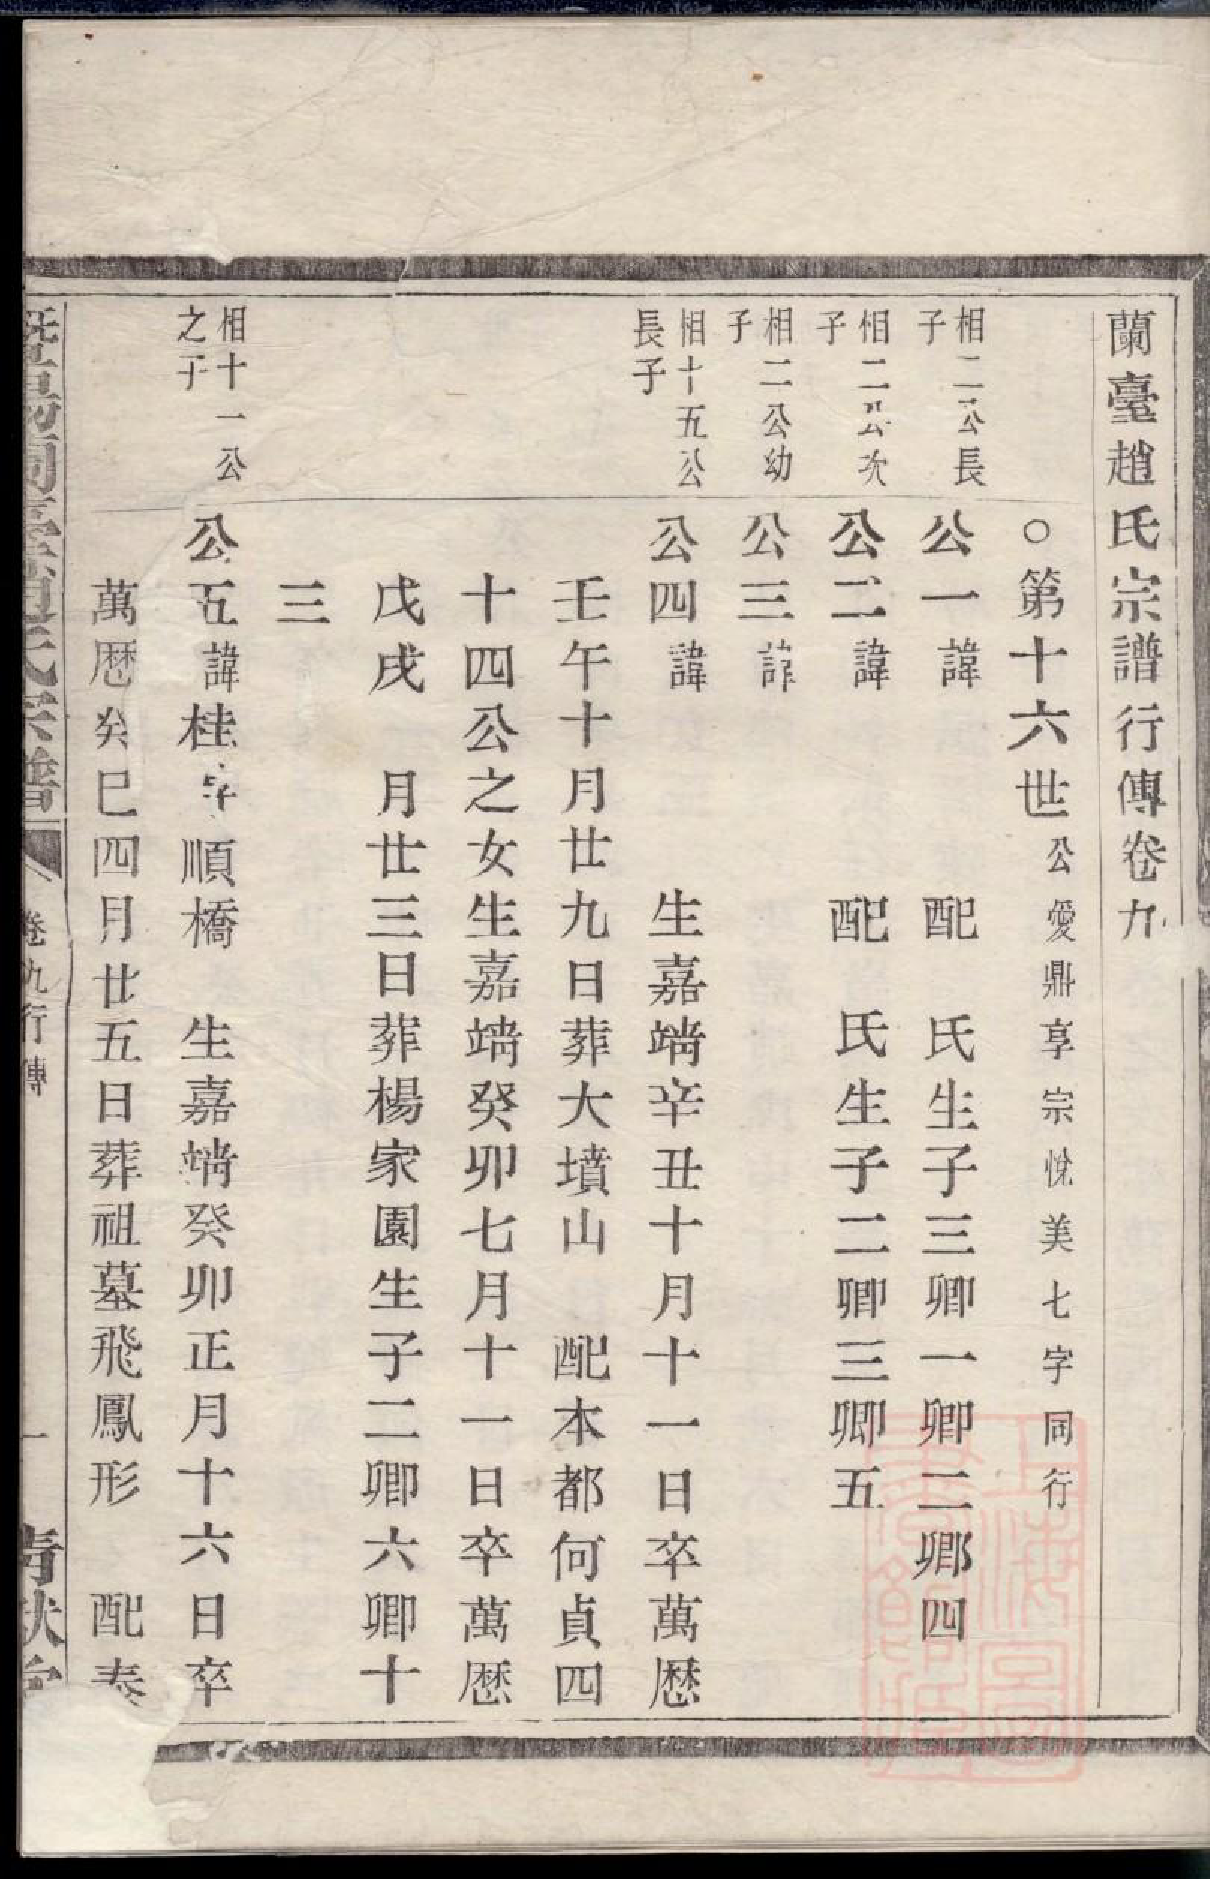 蘭臺趙氏宗譜行傳卷九
○第十六世公愛鼎享宗悅美七字同行
相二公長子
公一諱 配 氏生子三卿一卿二卿四
相二公次子
公二諱 配 氏生子二卿三卿五
相二公幼子
公三諱
相十五公長子
公四諱 生嘉靖辛丑十月十一日卒萬歷
壬午十月廿九日葬大墳山 配本都何貞四
十四公之女生嘉靖癸卯七月十一日卒萬歷
戊戌 月廿三日葬楊家園生子二卿六卿十
三
相十一公之子
公五諱桂字順橋 生嘉靖癸卯正月十六日卒
萬歷癸巳四月廿五日葬祖墓飛鳳形 配
暨陽蘭臺趙氏宗譜
卷九行傳
一
上海圖書館藏